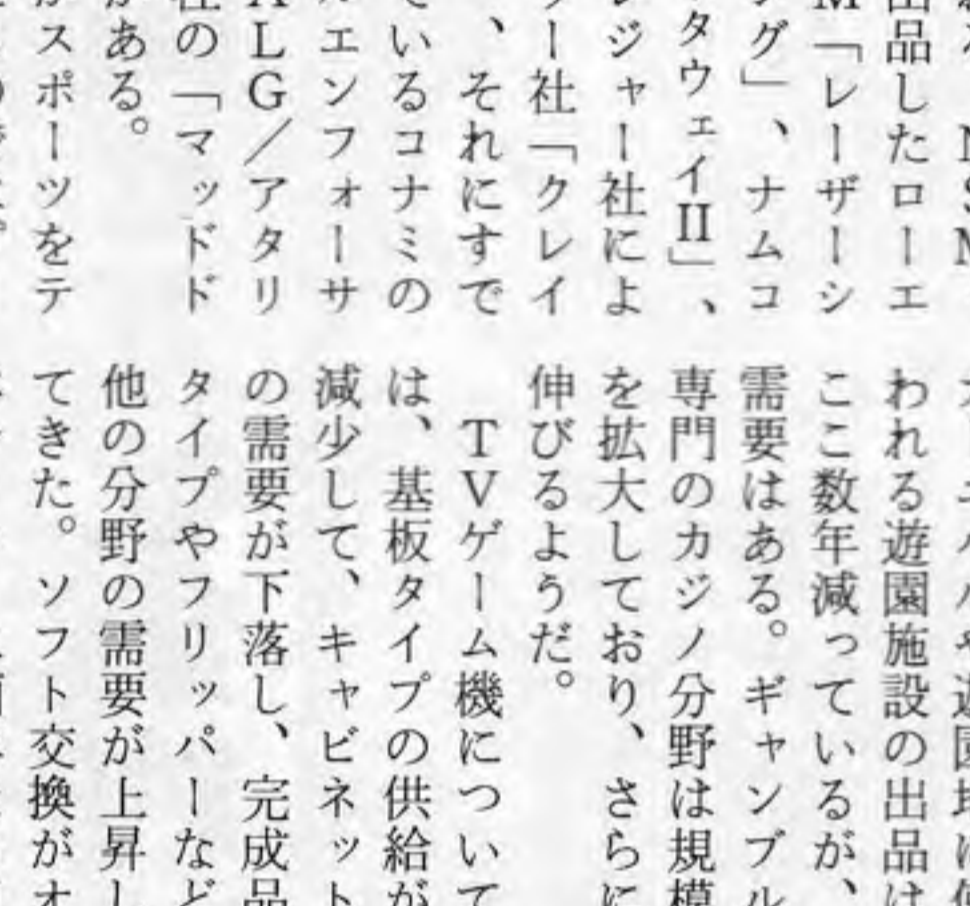 NSM
出品したローエ
M「レーザーシ
グ」、ナムコ
タウェイII」、
ジャー社によ
ー社「クレイ
、それにすで
ているコナミの
エンフォーサ
ALG／アタリ
社の「マッドド
がある。
がスポーツをテ
わわれる遊園施設の出品は
ここ数年減っているが、
需要はある。ギャンブル
専門のカジノ分野は規模
を拡大しており、さらに
伸びるようだ。
TVゲーム機について
は、基板タイプの供給が
減少して、キャビネット
の需要が下落し、完成品
タイプやフリッパーなど
他の分野の需要が上昇し
てきた。ソフト交換がオ